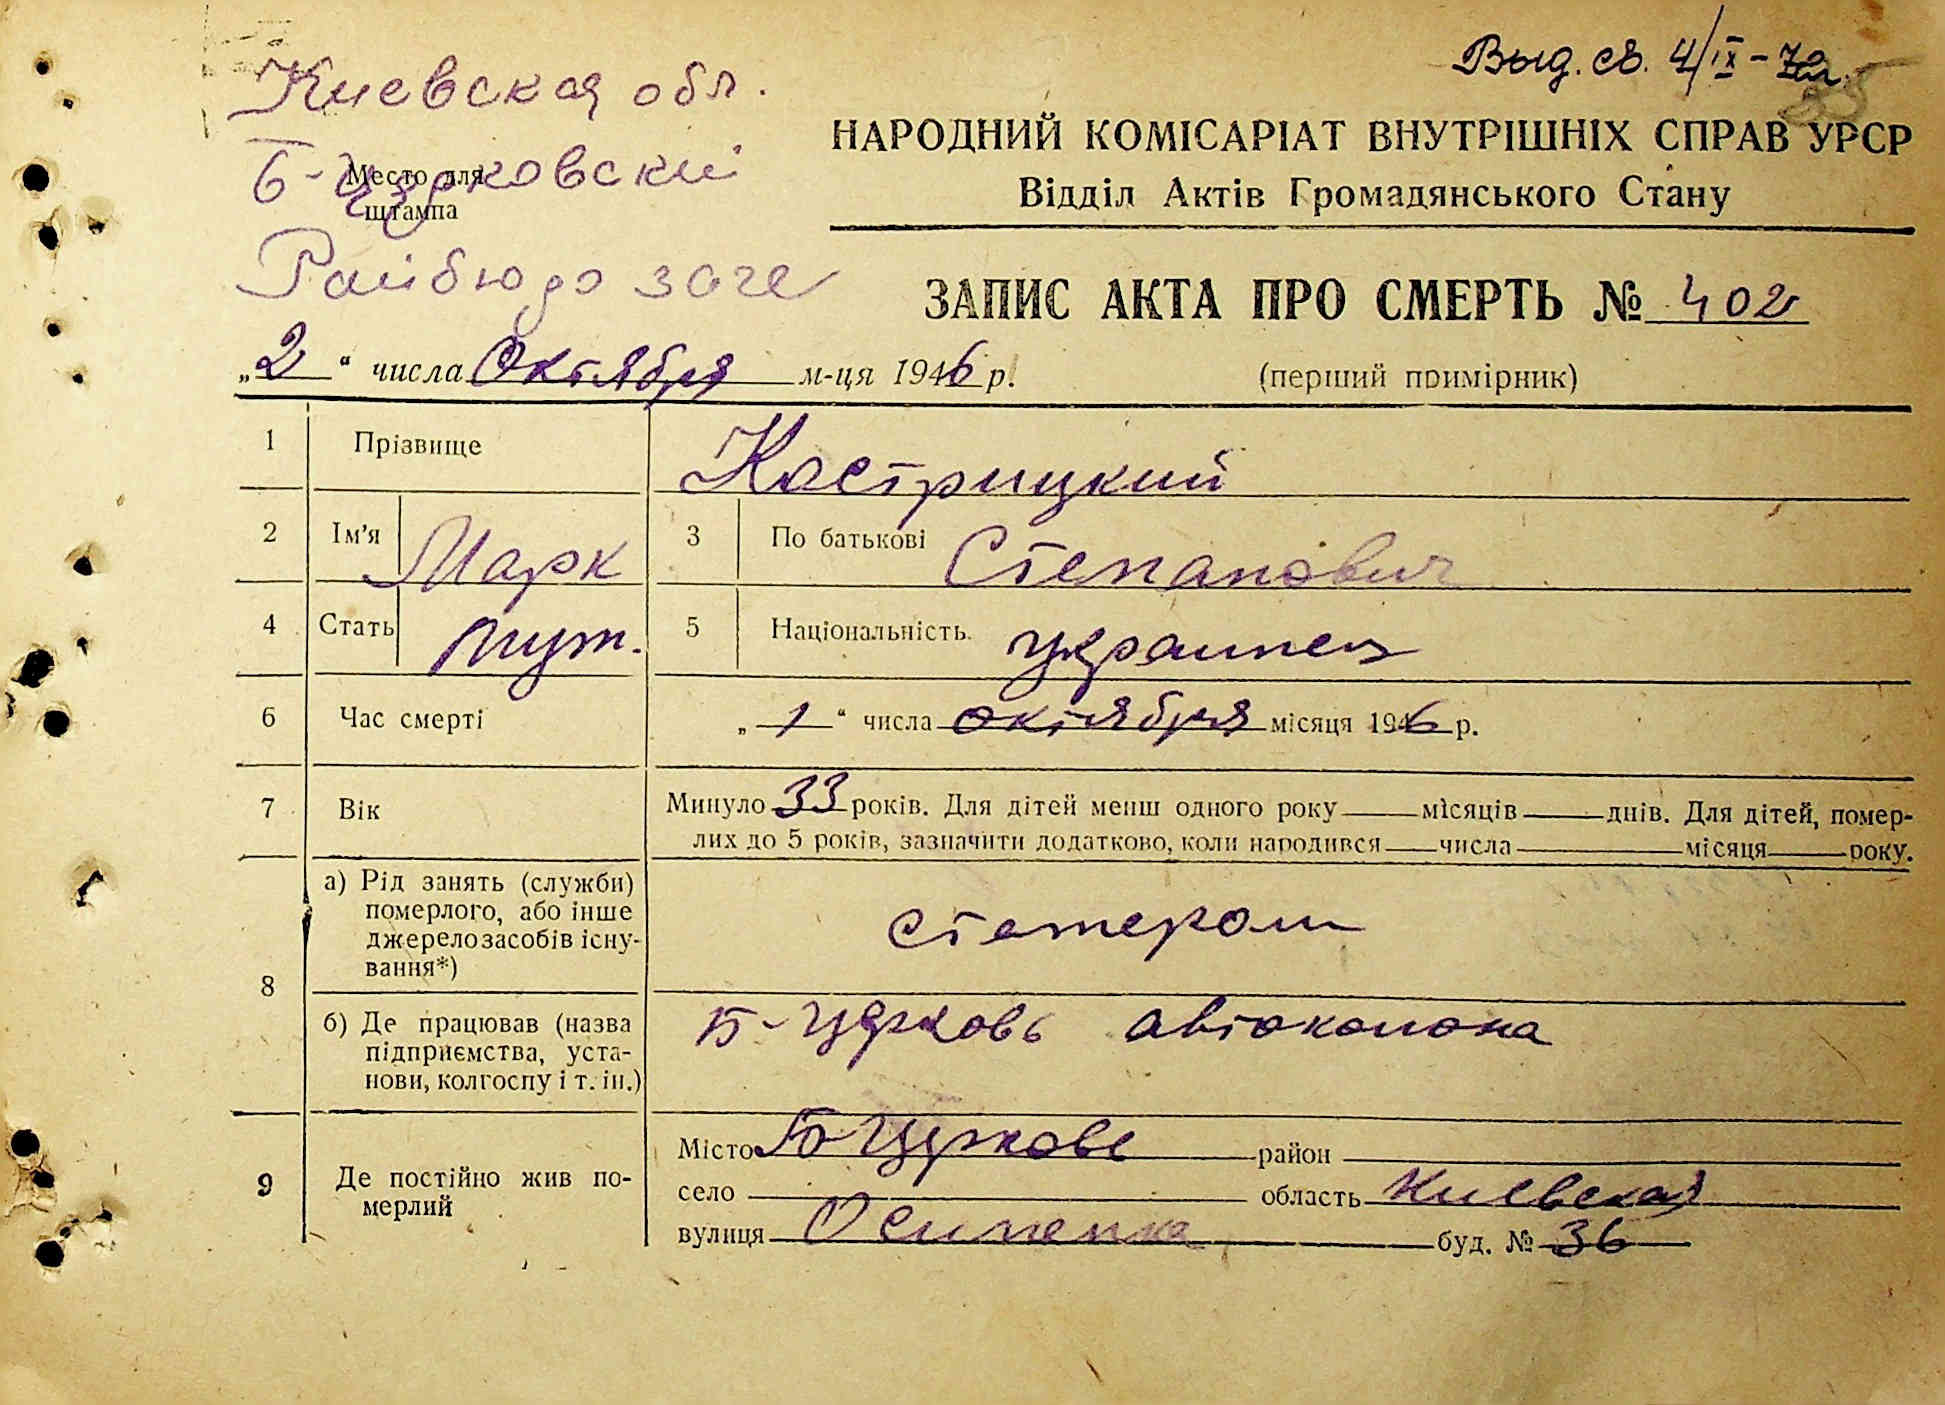 Выд. св. 4/IX-70г.
Киевская обл.
Б-Церковский
Место для
штампа
Райбюро загс
НАРОДНИЙ КОМІСАРІАТ ВНУТРІШНІХ СПРАВ УРСР
Відділ Актів Громадянського Стану
ЗАПИС АКТА ПРО СМЕРТЬ № 402
„2“ числа Октября м-ця 1946 р.
(перший примірник)
1 Прізвище Кастрицкий
2 Ім'я Марк 3 По батькові Степанович
4 Стать муж. 5 Національність украинец
6 Час смерті „1“ числа октября місяця 1946 р.
7 Вік Минуло 33 років. Для дітей менш одного року місяців днів. Для дітей, помер-
лих до 5 років, зазначити додатково, коли народився числа місяця року.
8 а) Рід занять (служби)
померлого, або інше
джерело засобів існу-
вання*)
б) Де працював (назва
підприємства, уста-
нови, колгоспу і т. ін.)
Б-Церковь автоколона
9 Де постійно жив по-
мерлий
Місто Б Церковь район
село область Киевская
вулиця Осипенка буд. № 36